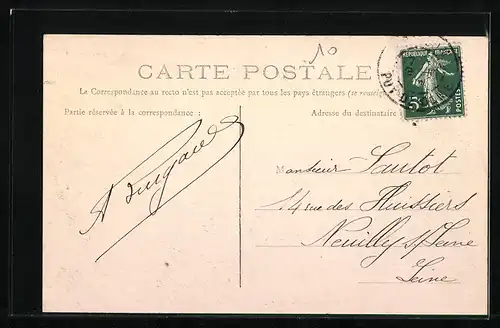 10
CARTE POSTALE
La Correspondance au recto n'est pas acceptée par tous les pays étrangers (se renseigner
Partie réservée à la correspondance :
Adresse du destinataire
REPUBLIQUE FRANÇAISE
5c
POSTES
PUT
Monsieur Sautot
14 rue des Huissiers
Neuilly s/Seine
Seine